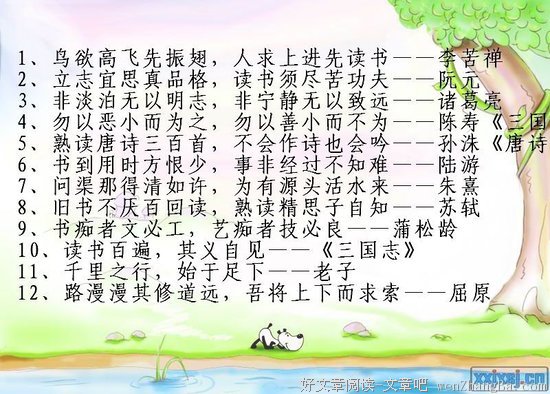 1、鸟欲高飞先振翅，人求上进先读书——李苦禅
2、立志宜思真品格，读书须尽苦功夫——阮元
3、非淡泊无以明志，非宁静无以致远——诸葛亮
4、勿以恶小而为之，勿以善小而不为——陈寿《三国
5、熟读唐诗三百首，不会作诗也会吟——孙洙《唐诗
6、书到用时方恨少，事非经过不知难——陆游
7、问渠那得清如许，为有源头活水来——朱熹
8、旧书不厌百回读，熟读精思子自知——苏轼
9、书痴者文必工，艺痴者技必良——蒲松龄
10、读书百遍，其义自见——《三国志》
11、千里之行，始于足下——老子
12、路漫漫其修道远，吾将上下而求索——屈原
好文章阅读-文章吧 wenzhangba.com